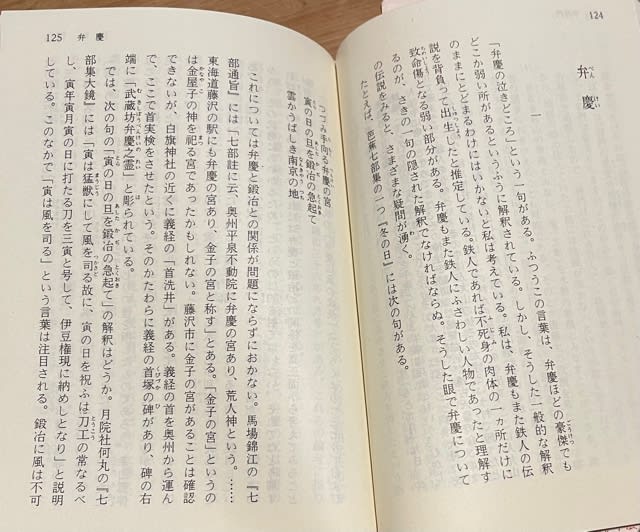 124
弁慶
べん
けい
一
「弁慶の泣きどころ」という一句がある。ふつうこの言葉は、弁慶ほどの豪傑でも
どこか弱い所があるというふうに解釈されている。しかし、そうした一般的な解釈
のままにとどまるわけにはいかないと私は考えている。私は、弁慶もまた鉄人の伝
説を背負って出生したと推定している。鉄人であれば不死身の肉体の一ヵ所だけに
致命傷となる弱い部分がある。弁慶もまた鉄人にふさわしい人物であったと理解す
るのが、さきの一句の隠された解釈でなければならぬ。そうした眼で弁慶について
の伝説をみると、さまざまな疑問が湧く。
たとえば、芭蕉七部集の一つ『冬の日』には次の句がある。
125 弁慶
つづみ手向る弁慶の宮
寅の日の旦を鍛冶の急起て
雲かうばしき南京の地
これについては弁慶と鍛冶との関係が問題にならずにおかない。馬場錦江の『七
部通旨』には「七部註に云、奥州平泉不動院に弁慶の宮あり、荒人神という。……
東海道藤沢の駅にも弁慶の宮あり、金子の宮と称す」とある。「金子の宮」というの
は金屋子の神を祀る宮であったかもしれない。藤沢市に金子の宮があることは確認
できないが、白旗神社の近くに義経の「首洗井」がある。義経の首を奥州から運ん
で、ここで首実検をさせたという。そのかたわらに義経の首塚の碑があり、碑の右
端に「武蔵坊弁慶之霊」と彫られている。
では、次の句の「寅の日の旦を鍛冶の急起て」の解釈はどうか。月院社何丸の『七
部集大鏡』には「寅は猛獣にして風を司る故に、寅の日を祝ふは刀工の常なるべ
し、寅年寅月寅の日に打たる刀を三寅と号して、伊豆権現に納めしとなり」と説明
している。このなかで「寅は風を司る」という言葉は注目される。鍛冶に風は不可